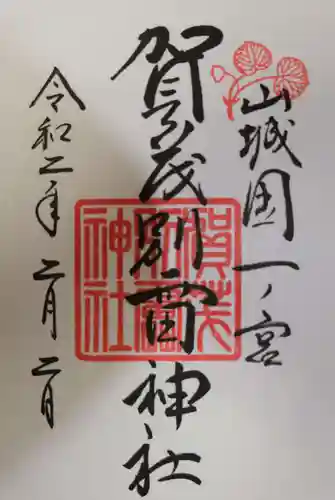 山城国一ノ宮
賀茂別雷神社
令和二年二月二日
賀茂
別雷
神社